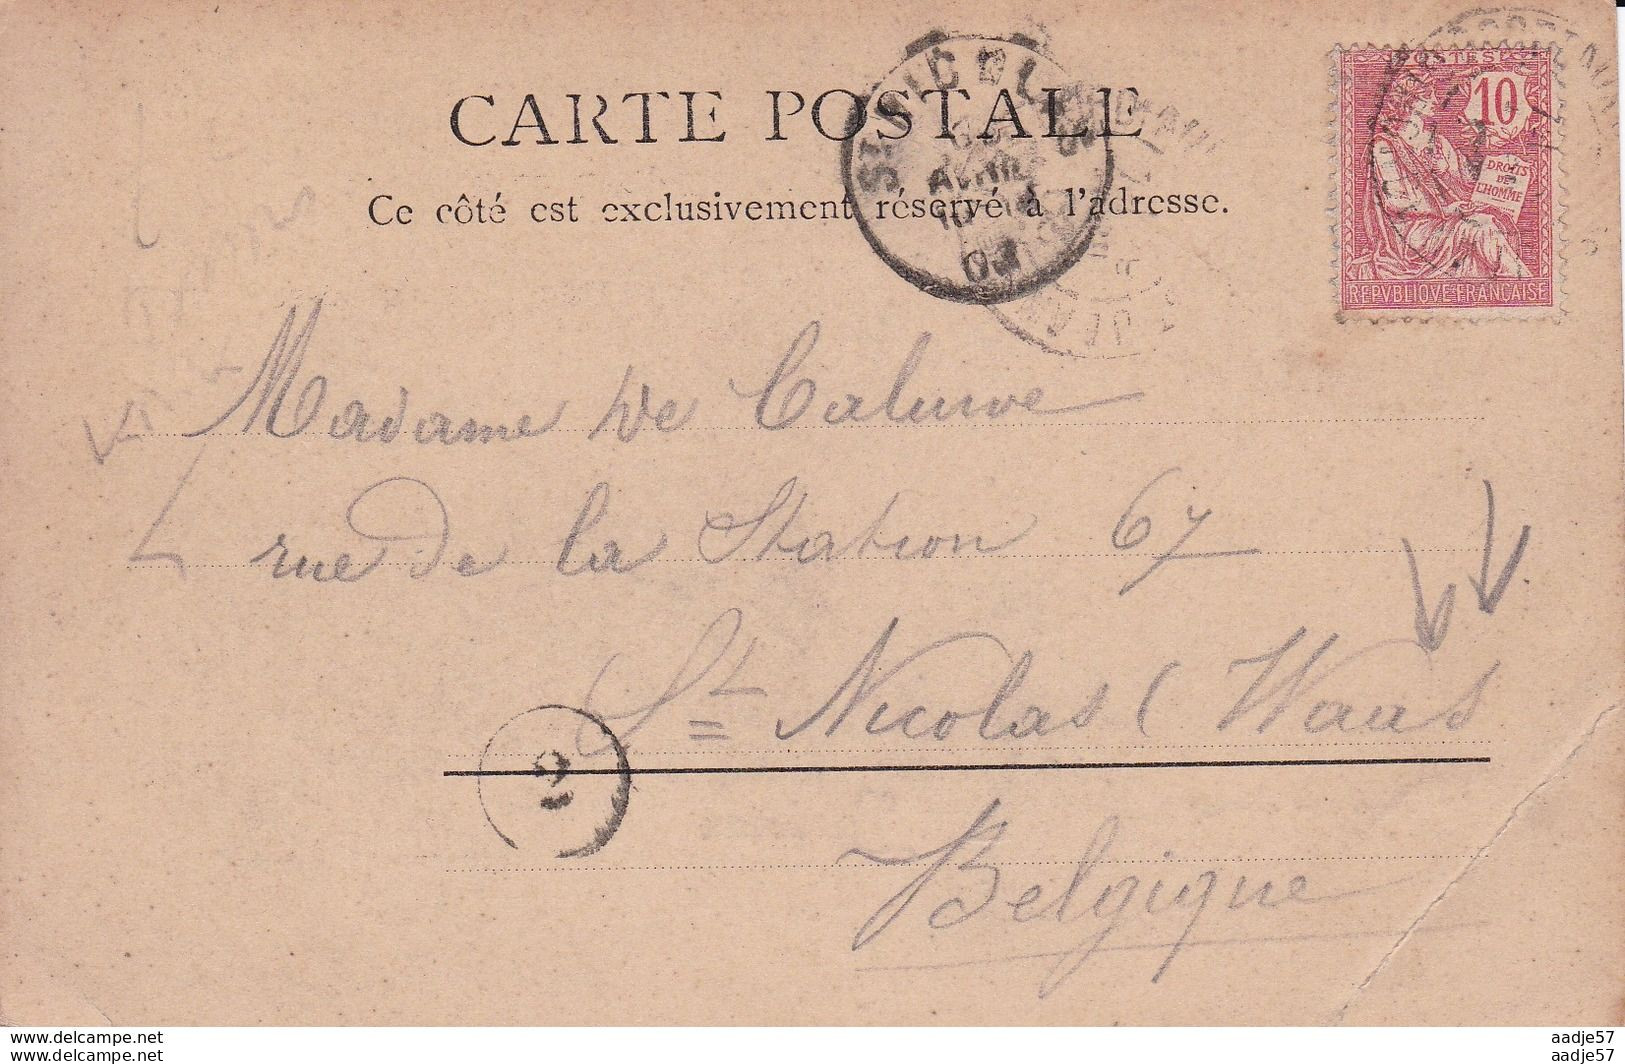 CARTE POSTALE
Ce côté est exclusivement réservé à l'adresse.
ST NICOLAS
AVRIL
03
POSTES
10
DROITS
DE
L'HOMME
REPVBLIQVE FRANÇAISE
Madame De Caluwe
rue de la Station 67
St Nicolas (Waas
Belgique
delcampe.net
delcampe.net
aadje57
aadje57